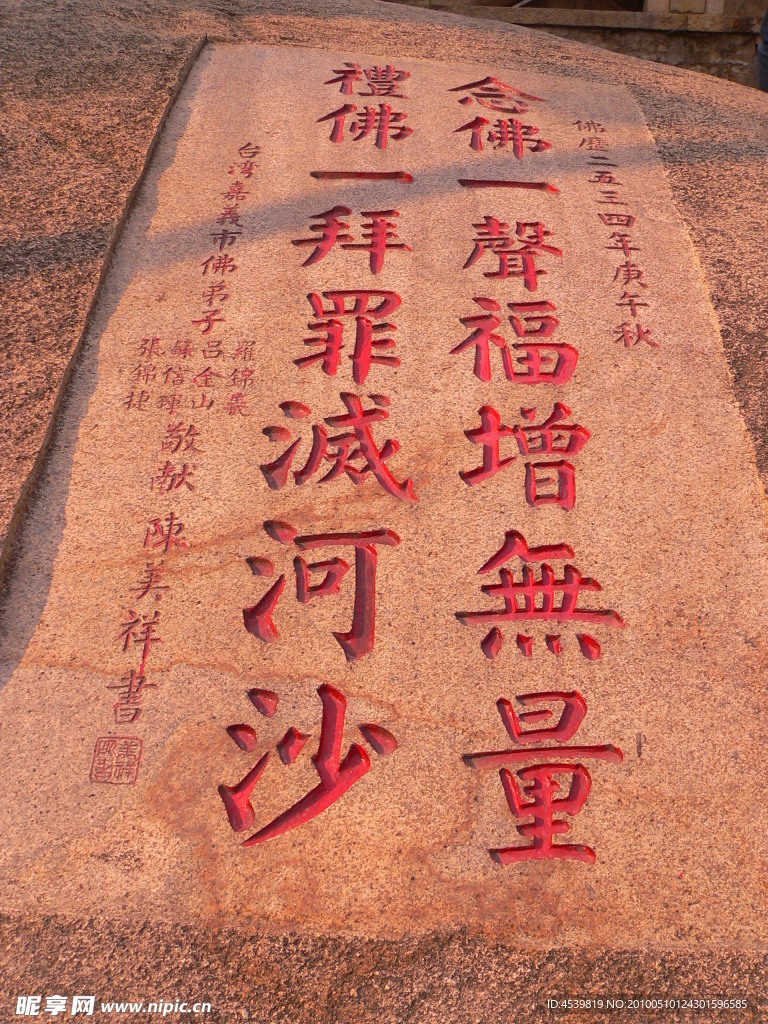 佛歷二五三四年庚午秋
念佛一聲福增無量
禮佛一拜罪滅河沙
台湾嘉義市佛弟子
羅錦義
呂金山
蘇信璋
張錦捷
敬献
陳美祥書
昵享网 www.nipic.cn
ID:4539819 NO:20100510124301596585